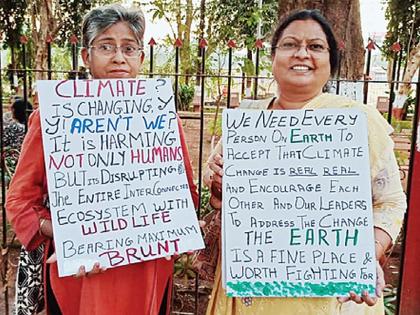 CLIMATE?
IS CHANGING, Y
Y! AREN'T WE?
IT IS HARMING
NOT ONLY HUMANS
BUT ITS DISRUPTING
THE ENTIRE INTERCONNECTED
ECOSYSTEM WITH
WILD LIFE
BEARING MAXIMUM
BRUNT
WE NEED EVERY
PERSON ON EARTH TO
ACCEPT THAT CLIMATE
CHANGE IS REAL REAL
AND ENCOURAGE EACH
OTHER AND OUR LEADERS
TO ADDRESS THE CHANGE
THE EARTH
IS A FINE PLACE &
WORTH FIGHTING FOR